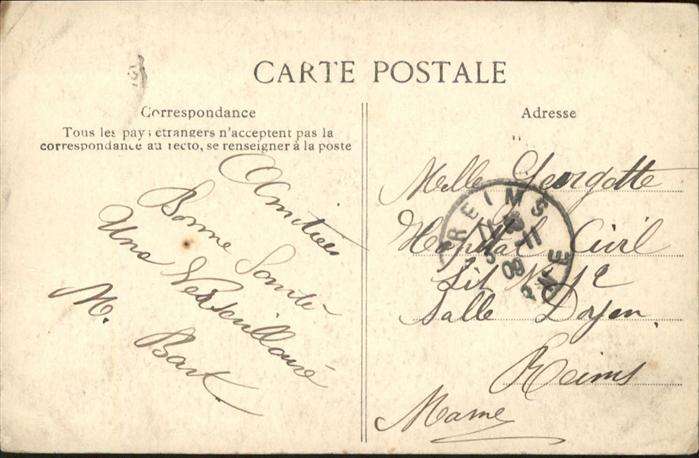 CARTE POSTALE
Correspondance
Tous les pays étrangers n'acceptent pas la
correspondance au recto, se renseigner à la poste
Amitiés
Bonne Santé
Une Versaillaise
M. Bart.
Adresse
Melle Georgette
Hopital Civil
Lit N 12
Salle Doyen
Reims
Marne
REIMS
5-11
09
MARNE